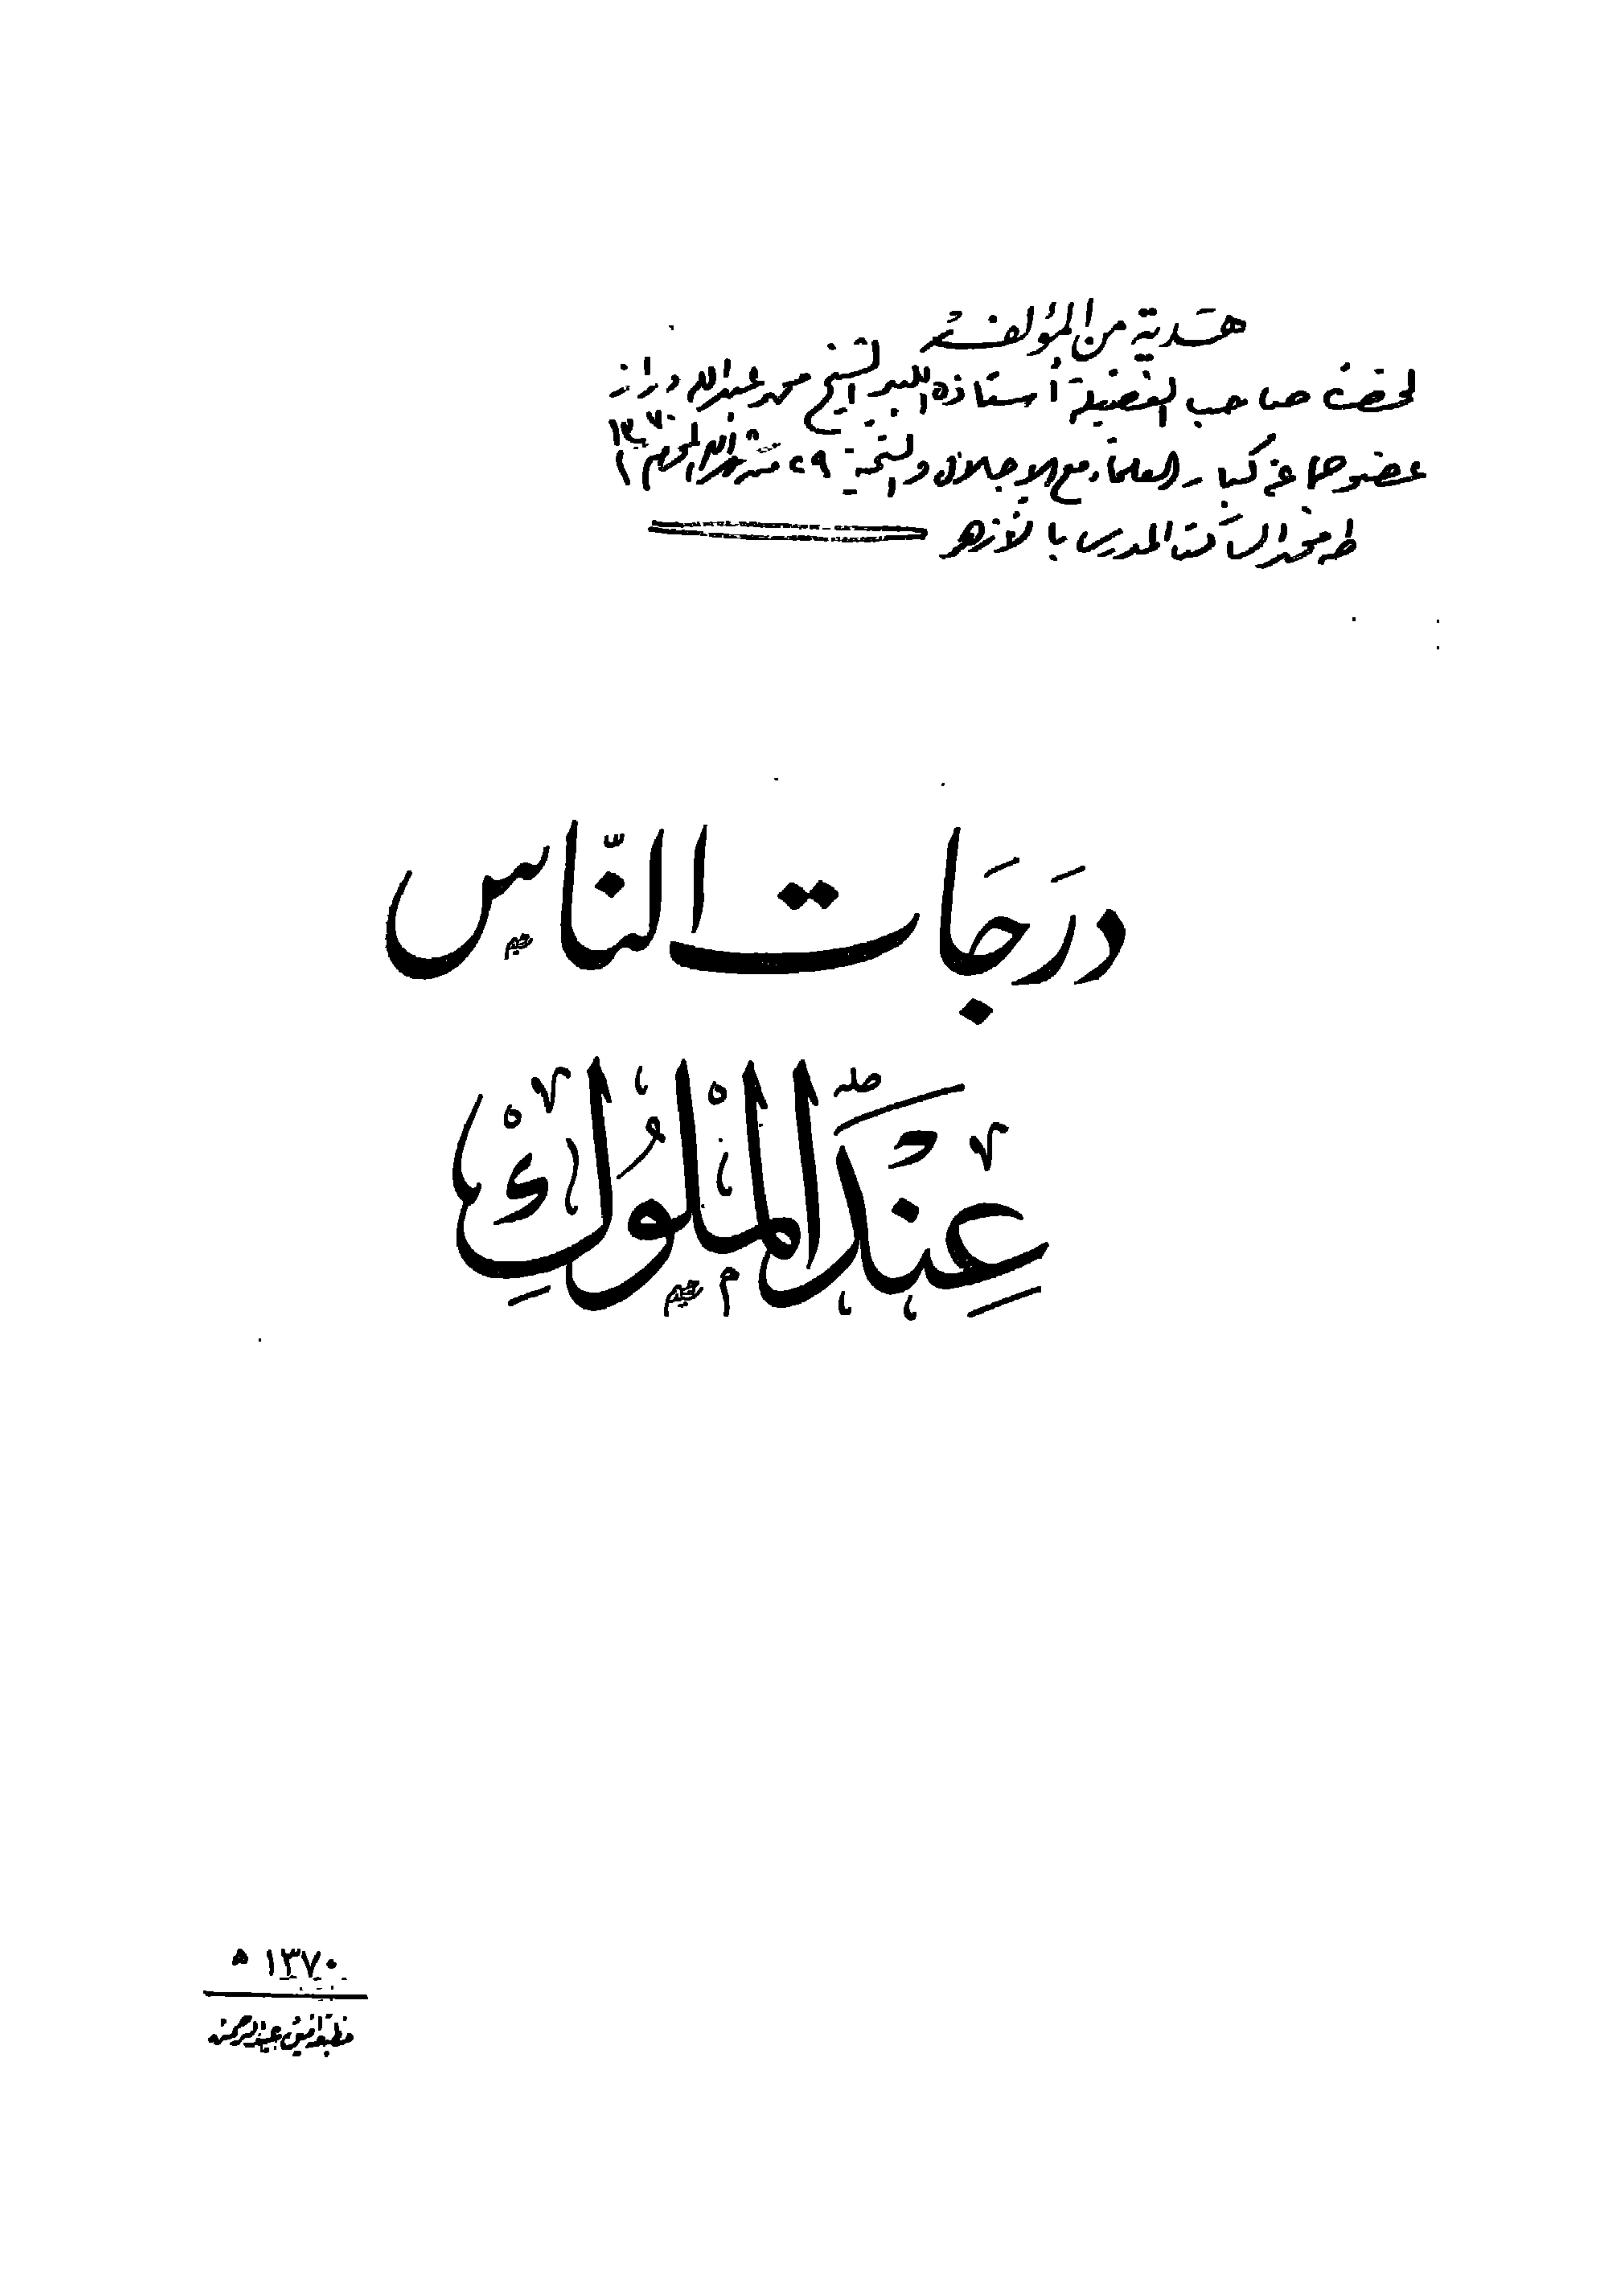 هدية من المؤلف
لحضرة صاحب الفضيلة أستاذه الكبير الشيخ محمد عبدالله دراز
عضو جماعة كبار العلماء مع الإجلال والتحية ٢٩ من شهر الله المحرم ١٣٧٠
طه محمد الساكت المدرس بالأزهر
دَرَجَات النّاس
عِنْدَ الْمُلُوكِ
١٣٧٠ ه
مطبعة عبدالرحمن